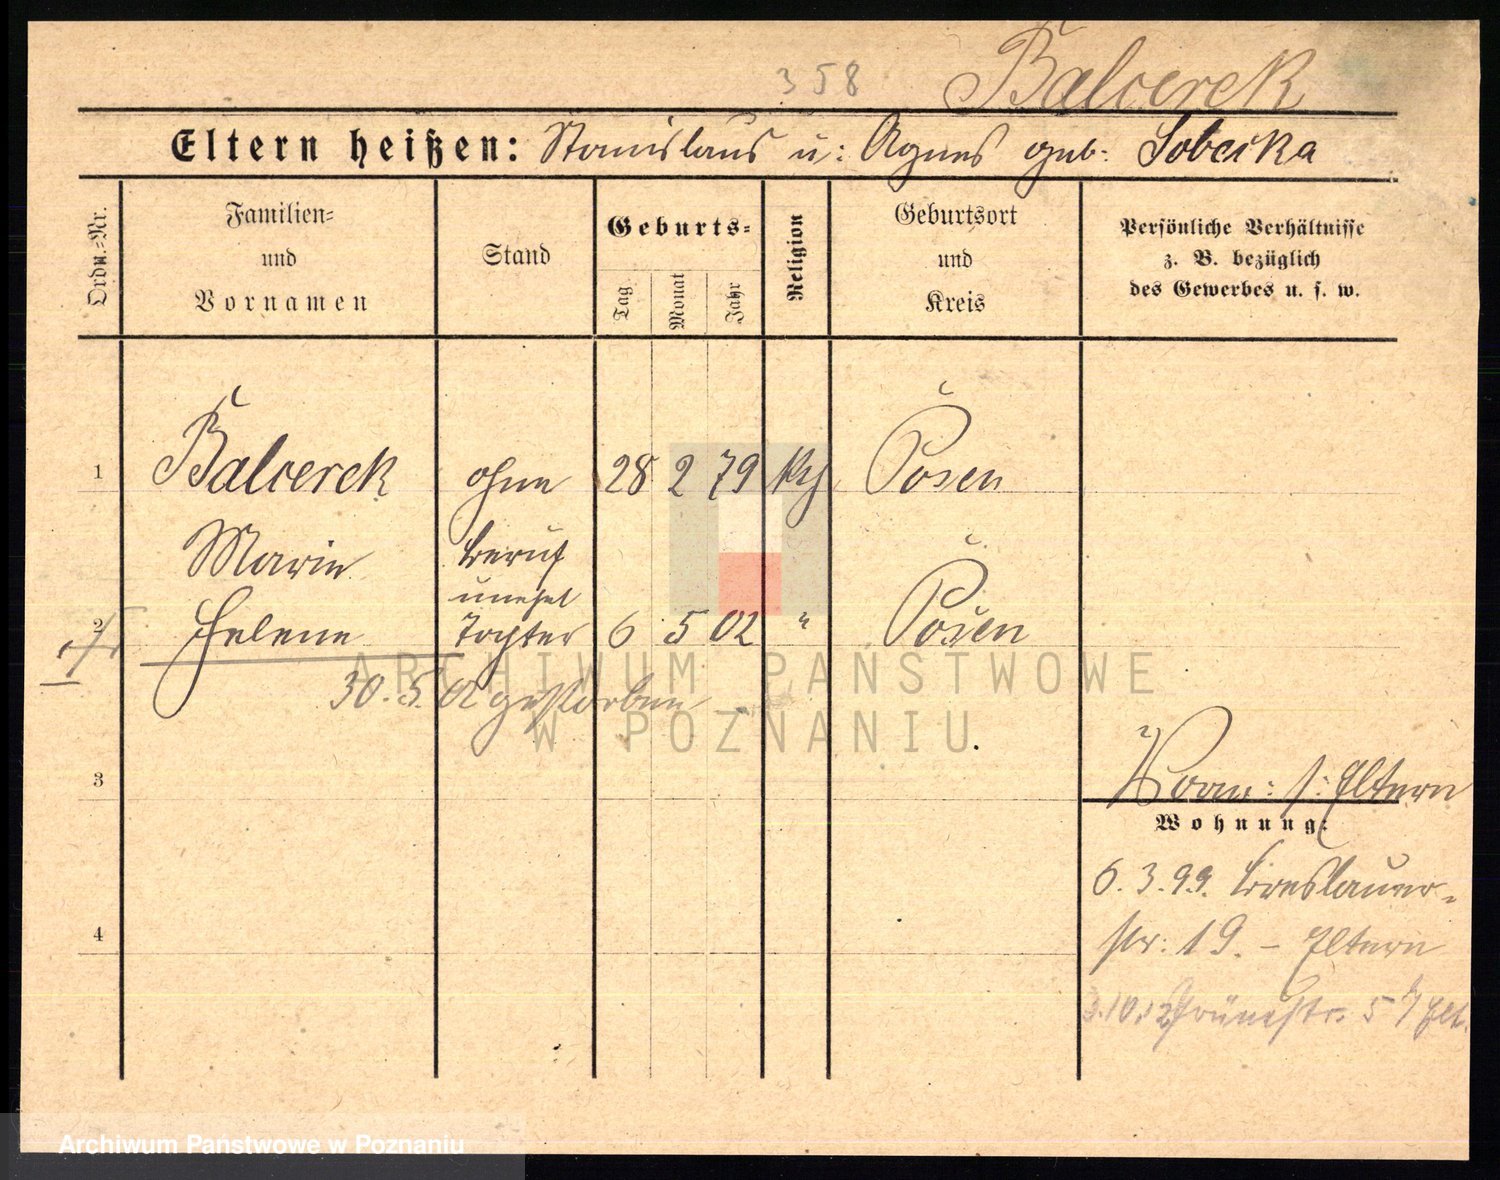 358
Balcerek
Eltern heißen: Stanislaus u: Agnes geb. Sobecka
Ordn.=Nr.
Familien=
und
Vornamen
Stand
Geburts=
Tag
Monat
Jahr
Religion
Geburtsort
und
Kreis
Persönliche Verhältnisse
z. B. bezüglich
des Gewerbes u. s. w.
1 Balcerek ohne 28 2 79 kth Posen
Marie Beruf
unehel
2 Helene Tochter 6 5 02 " Posen
30.5.02 gestorben
3
Vorm: s. Eltern
Wohnung:
6.3.99. Breslauer-
4
str: 19. - Eltern
3.10.12 Grünestr. 5
ARCHIWUM PAŃSTWOWE
W POZNANIU
Archiwum Państwowe w Poznaniu